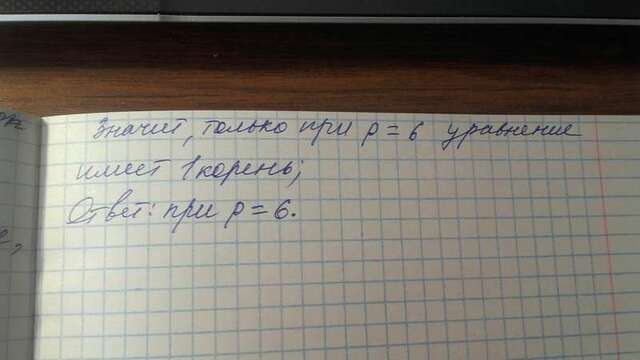 Значит, только при p = 6 уравнение
имеет 1 корень;
Ответ: при p = 6.